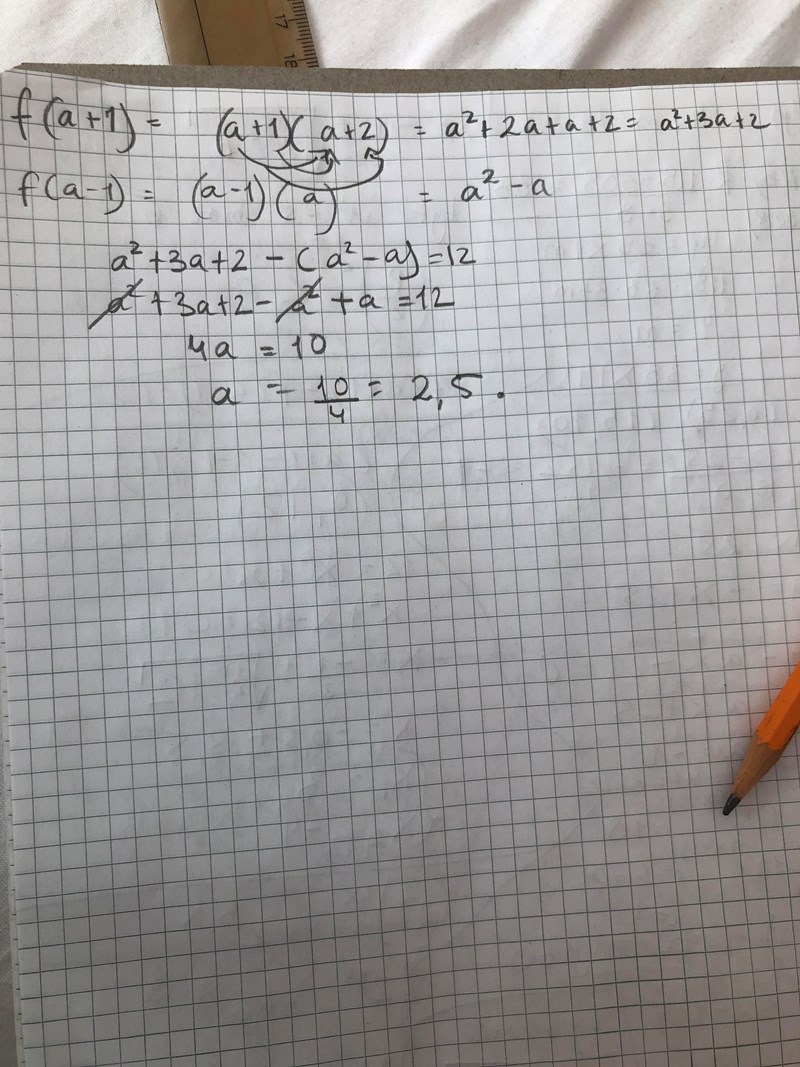 17
18
f(a+1) = (a+1)(a+2) = a²+2a+a+2 = a²+3a+2
f(a-1) = (a-1)(a) = a² - a
a² +3a+2 - (a² -a) =12
a² +3a+2 - a² +a =12
4a = 10
a = 10/4 = 2,5.